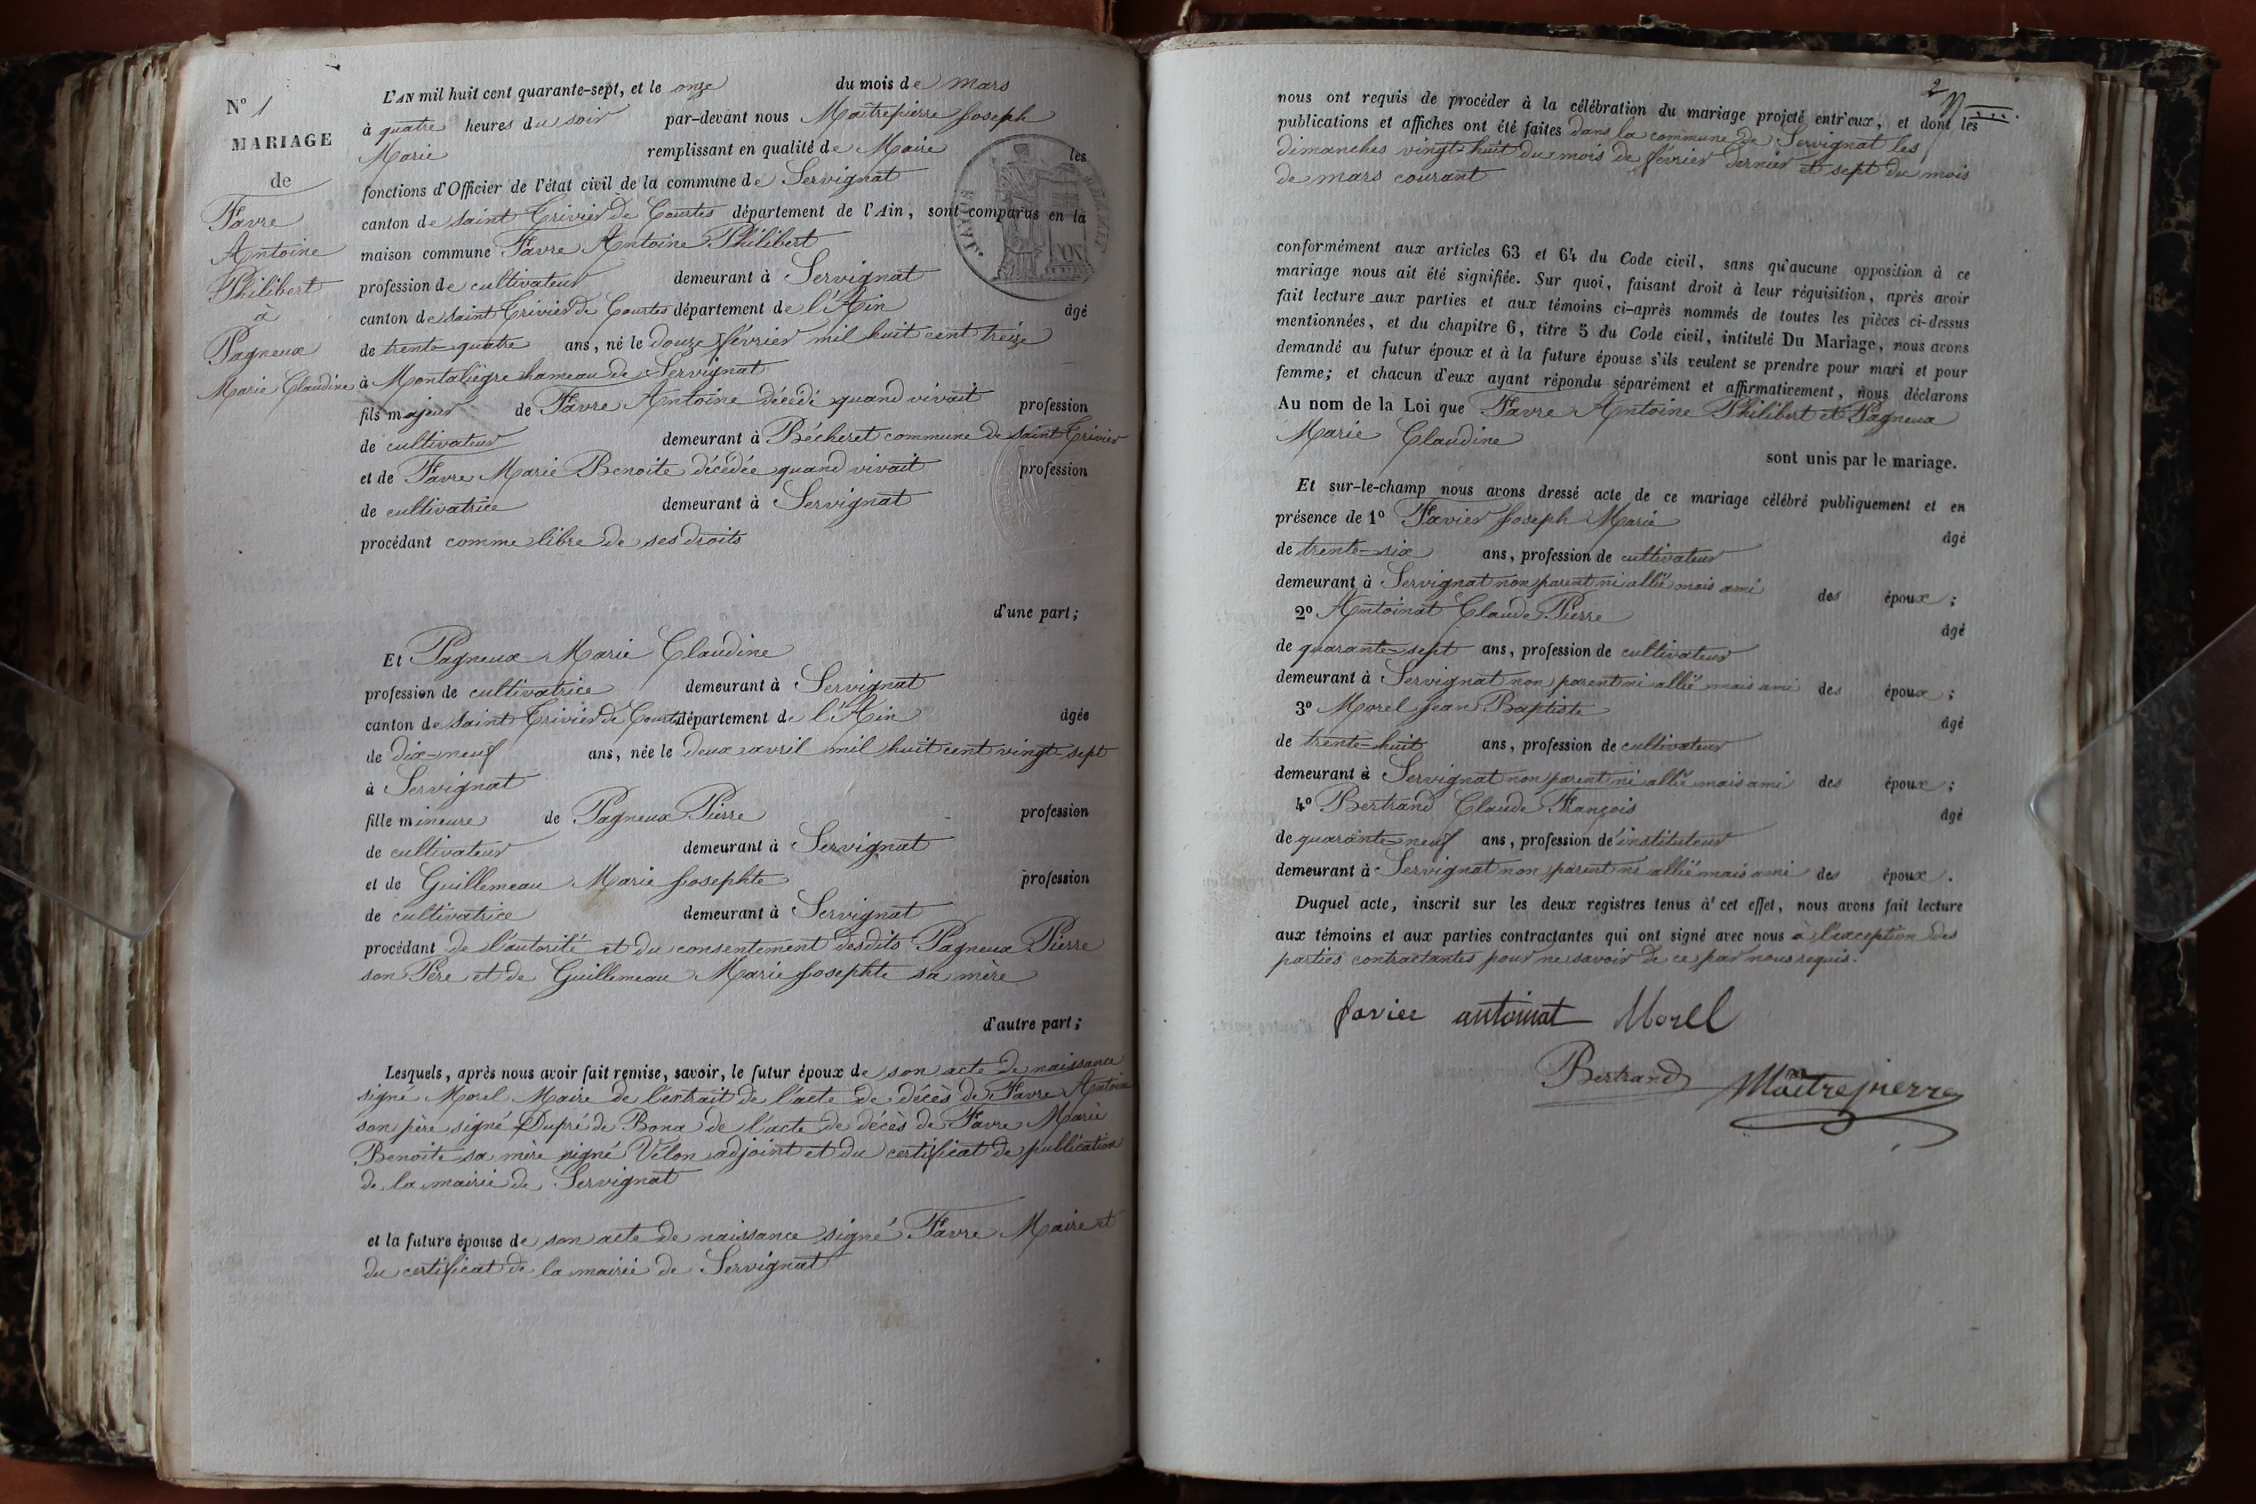 N° 1
MARIAGE
de
Favre
Antoine
Philibert
à
Pagneux
Marie Claudine
L'AN mil huit cent quarante-sept, et le onze du mois de mars
à quatre heures du soir par-devant nous Maitrepierre Joseph
Marie remplissant en qualité de Maire les
fonctions d'Officier de l'état civil de la commune de Servignat
canton de saint Trivier de Courtes département de l'Ain, sont comparus en la
maison commune Favre Antoine Philibert
profession de cultivateur demeurant à Servignat
canton de saint Trivier de Courtes département de l'Ain âgé
de trente-quatre ans, né le douze février mil huit cent treize
à Montaliègre hameau de Servignat
fils majeur de Favre Antoine décédé quand vivait profession
de cultivateur demeurant à Bécheret commune de saint Trivier
et de Favre Marie Benoite décédée quand vivait profession
de cultivatrice demeurant à Servignat
procédant comme libre de ses droits
d'une part;
Et Pagneux Marie Claudine
profession de cultivatrice demeurant à Servignat
canton de saint Trivier de Courtes département de l'Ain âgée
de dix-neuf ans, née le deux avril mil huit cent vingt-sept
à Servignat
fille mineure de Pagneux Pierre profession
de cultivateur demeurant à Servignat
et de Guillemeau Marie Josephte profession
de cultivatrice demeurant à Servignat
procédant de l'autorité et du consentement desdits Pagneux Pierre
son Père et de Guillemeau Marie Josephte sa mère
d'autre part;
Lesquels, après nous avoir fait remise, savoir, le futur époux de son acte de naissance
signé Morel Maire de l'extrait de l'acte de décès de Favre Antoine
son père signé Dupré de Bona de l'acte de décès de Favre Marie
Benoite sa mère signé Velon adjoint et du certificat de publication
de la mairie de Servignat
et la future épouse de son acte de naissance signé Favre Maire et
du certificat de la mairie de Servignat
2
nous ont requis de procéder à la célébration du mariage projeté entr'eux, et dont les
publications et affiches ont été faites dans la commune de Servignat les
dimanches vingt-huit du mois de février dernier et sept du mois
de mars courant
conformément aux articles 63 et 64 du Code civil, sans qu'aucune opposition à ce
mariage nous ait été signifiée. Sur quoi, faisant droit à leur réquisition, après avoir
fait lecture aux parties et aux témoins ci-après nommés de toutes les pièces ci-dessus
mentionnées, et du chapitre 6, titre 5 du Code civil, intitulé Du Mariage, nous avons
demandé au futur époux et à la future épouse s'ils veulent se prendre pour mari et pour
femme; et chacun d'eux ayant répondu séparément et affirmativement, nous déclarons
Au nom de la Loi que Favre Antoine Philibert et Pagneux
Marie Claudine
sont unis par le mariage.
Et sur-le-champ nous avons dressé acte de ce mariage célébré publiquement et en
présence de 1° Favier Joseph Marie
âgé
de trente-six ans, profession de cultivateur
demeurant à Servignat non parent ni allié mais ami des époux;
2° Antoinat Claude Pierre
âgé
de quarante-sept ans, profession de cultivateur
demeurant à Servignat non parent ni allié mais ami des époux;
3° Morel Jean Baptiste
âgé
de trente-huit ans, profession de cultivateur
demeurant à Servignat non parent ni allié mais ami des époux;
4° Bertrand Claude François
âgé
de quarante-neuf ans, profession de instituteur
demeurant à Servignat non parent ni allié mais ami des époux.
Duquel acte, inscrit sur les deux registres tenus à cet effet, nous avons fait lecture
aux témoins et aux parties contractantes qui ont signé avec nous à l'exception des
parties contractantes pour ne savoir de ce par nous requis.
favier antoinat Morel
Bertrand Maitrepierre